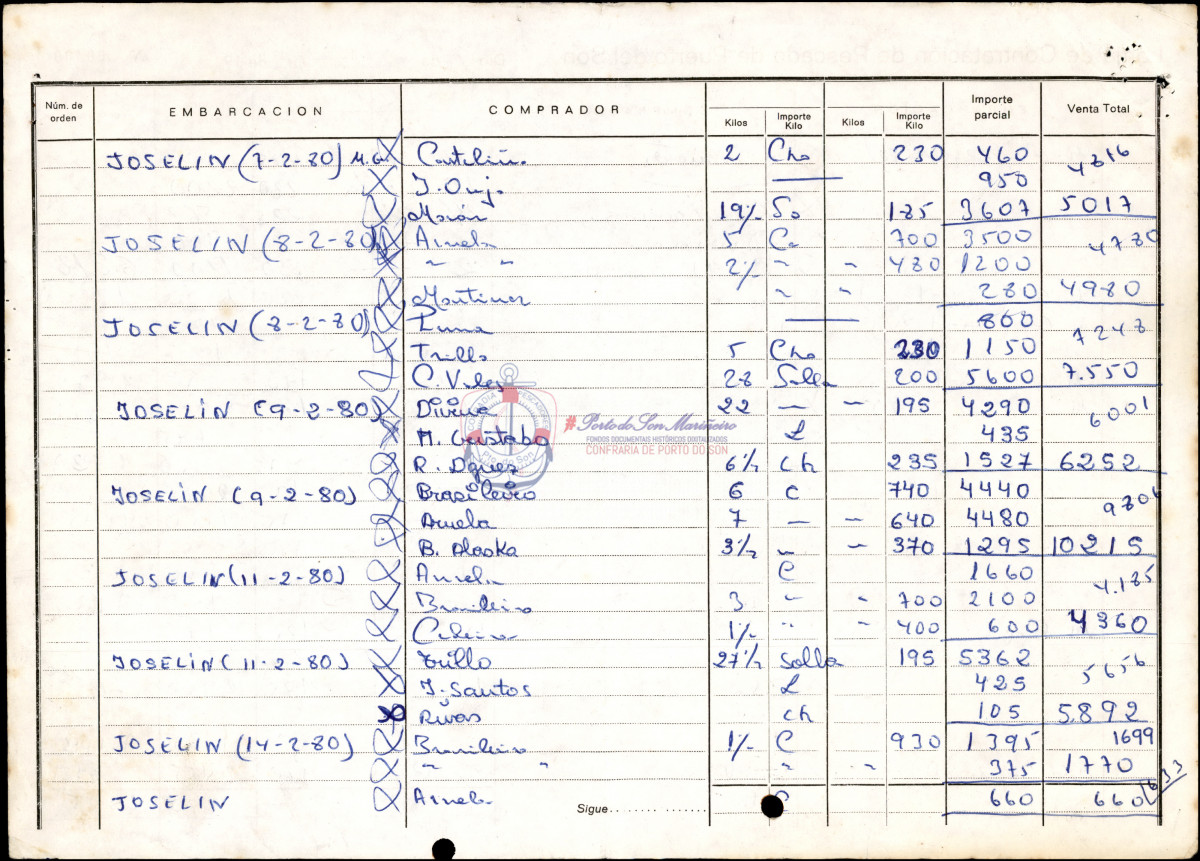 Núm. de orden EMBARCACION COMPRADOR Kilos Importe Kilo Kilos Importe Kilo Importe parcial Venta Total
JOSELIN (7-2-80) M.G. 2 Cho 230 460 4816
J. 950
Morán 19½ So 185 3607 5017
JOSELIN (8-2-80) Arnela 5 C 700 3500 4780
" " 2½ " " 480 1200
Martinez " " 280 4980
JOSELIN (8-2-80) Luna 800 7248
Trillo 5 Cho 230 1150
C. Vales 28 Solla 200 5600 7.550
JOSELIN (9-2-80) 22 — — 195 4290 6001
M. Gustabo L 435
R. 6½ Ch 235 1527 6252
JOSELIN (9-2-80) Brasileiro 6 C 740 4440
Arnela 7 — — 640 4480
B. Alaska 3½ — — 370 1295 10215
JOSELIN (11-2-80) Arnela C 1660 4.185
Brasileiro 3 " " 700 2100
1½ " " 400 600 4360
JOSELIN (11-2-80) Trillo 27½ Solla 195 5362 5656
J. Santos L 425
Rivas ch 105 5.892
JOSELIN (14-2-80) Brasileiro 1½ C 930 1395 1699
" " " " 375 1770
JOSELIN Arnela Sigue........ C 660 660 633
COFRADIA PESCADORES
Pto. do Son
#PortodoSonMariñeiro
FONDOS DOCUMENTAIS HISTÓRICOS DIGITALIZADOS
CONFRARIA DE PORTO DO SON